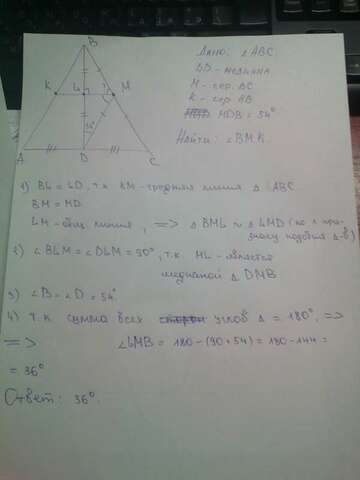 B
K
L
M
?
54°
A
D
C
Дано: ∠ABC.
BD - медиана
M - сер. BC
K - сер. AB
MDB = 54°
Найти: ∠BMK.
1) BL = LD, т.к KM - средняя линия Δ ABC.
BM = MD.
LM - общ. линия, => Δ BML ≈ Δ LMD (по 1 при-
знаку подобия Δ-в)
2) ∠BLM = ∠DLM = 90°, т.к ML - является
медианой Δ DMB
3) ∠B = ∠D = 54°
4) т.к сумма всех углов Δ = 180°, =>
=> ∠LMB = 180 - (90 + 54) = 180 - 144 =
= 36°
Ответ: 36°.